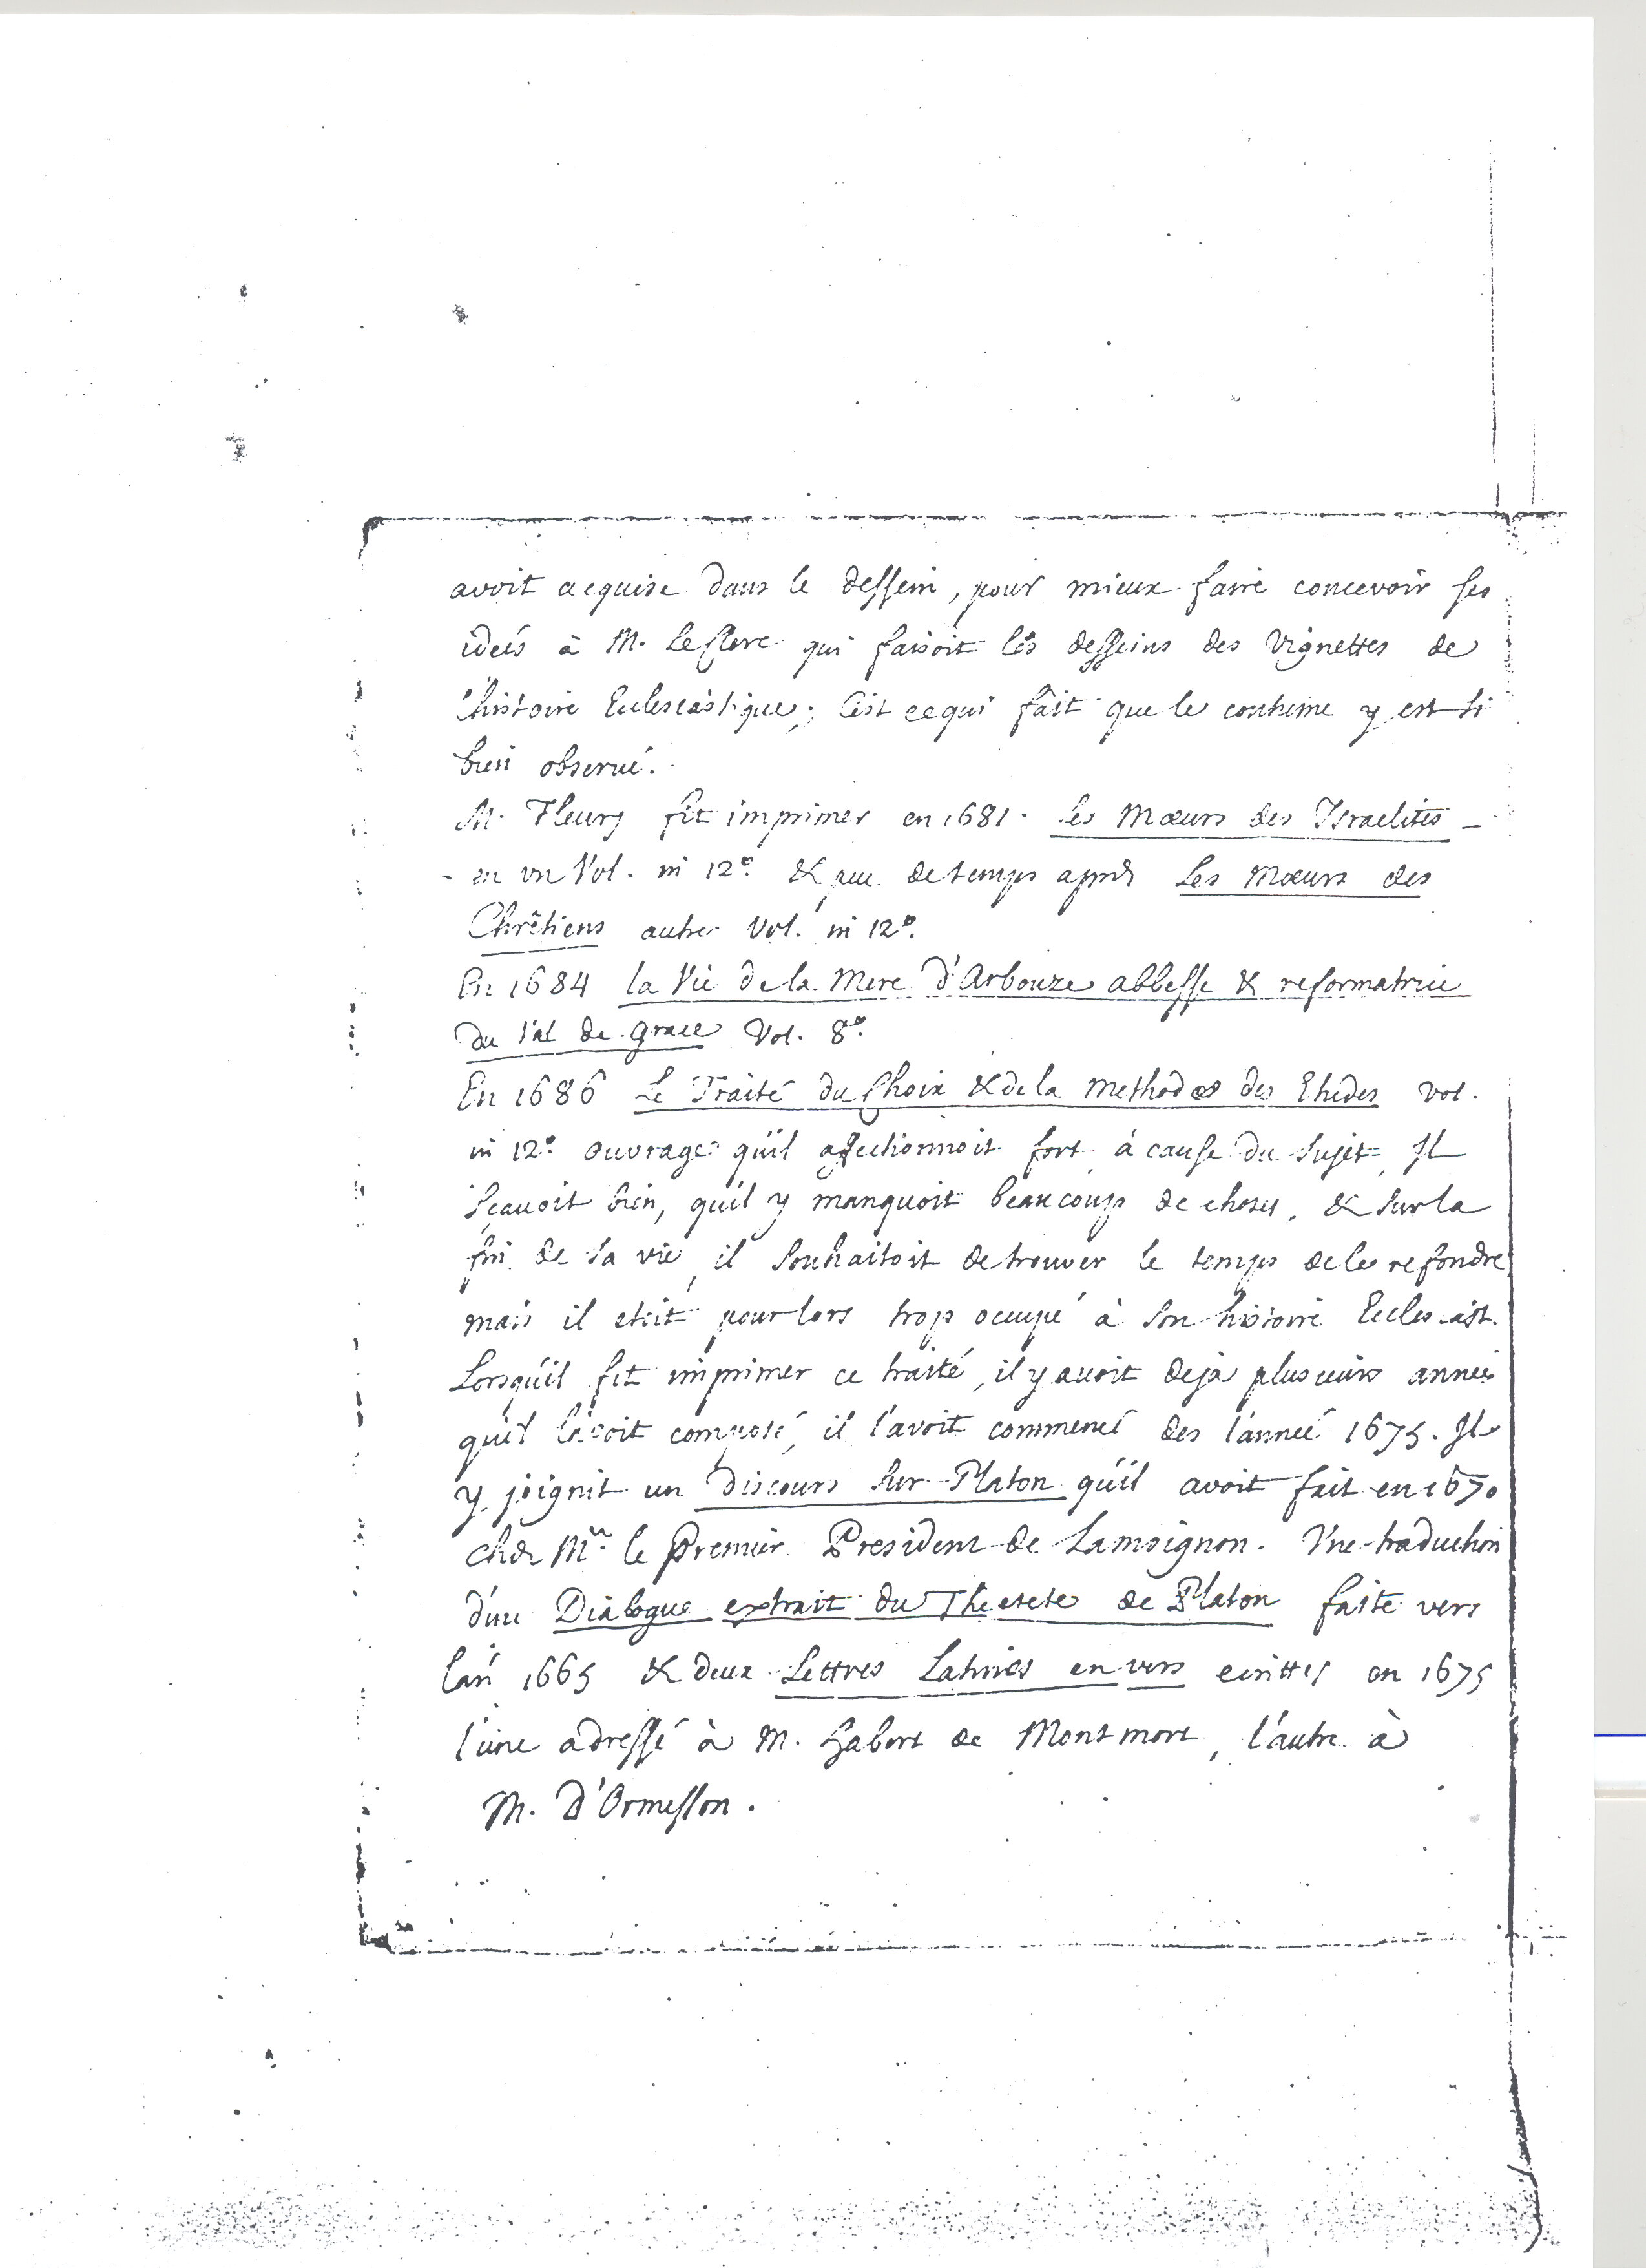 avoit acquise dans le dessein, pour mieux faire concevoir ses
ideés à M. Leclerc qui faisoit les desseins des Vignettes de
l'histoire Eclesiastique; C'est ce qui fait que le costume y est si
bien observé.
M. Fleury fit imprimer en 1681. Les Mœurs des Israelites
en vn Vol. in 12º. & peu de temps après Les Mœurs des
Chrêtiens autre Vol. in 12º.
En 1684 la Vie de la Mere d'Arbouze abbesse & reformatrice
du Val de Grace Vol. 8º.
En 1686 Le Traité du Choix & de la Methode des Etudes vol.
in 12º. ouvrage qu'il affectionnoit fort à cause du sujet, Il
sçavoit bien, qu'il y manquoit beaucoup de choses, & sur la
fin de sa vie, il souhaitoit de trouver le temps de les refondre
mais il etoit pour lors trop occupé à son histoire Eccles.ast.
Lorsqu'il fit imprimer ce traité, il y avoit deja plusieurs anneés
qu'il l'avoit composé, il l'avoit commencé des l'anneé 1675. Il
y joignit un Discours sur Platon qu'il avoit fait en 1670
chez Mr. le Premier President de Lamoignon. Vne traduction
d'un Dialogue extrait du Theetete de Platon faite vers
l'an 1665 & deux Lettres Latines en vers ecrittes en 1675
l'une adressé à M. Habert de Montmort, l'autre à
M. D'Ormesson.